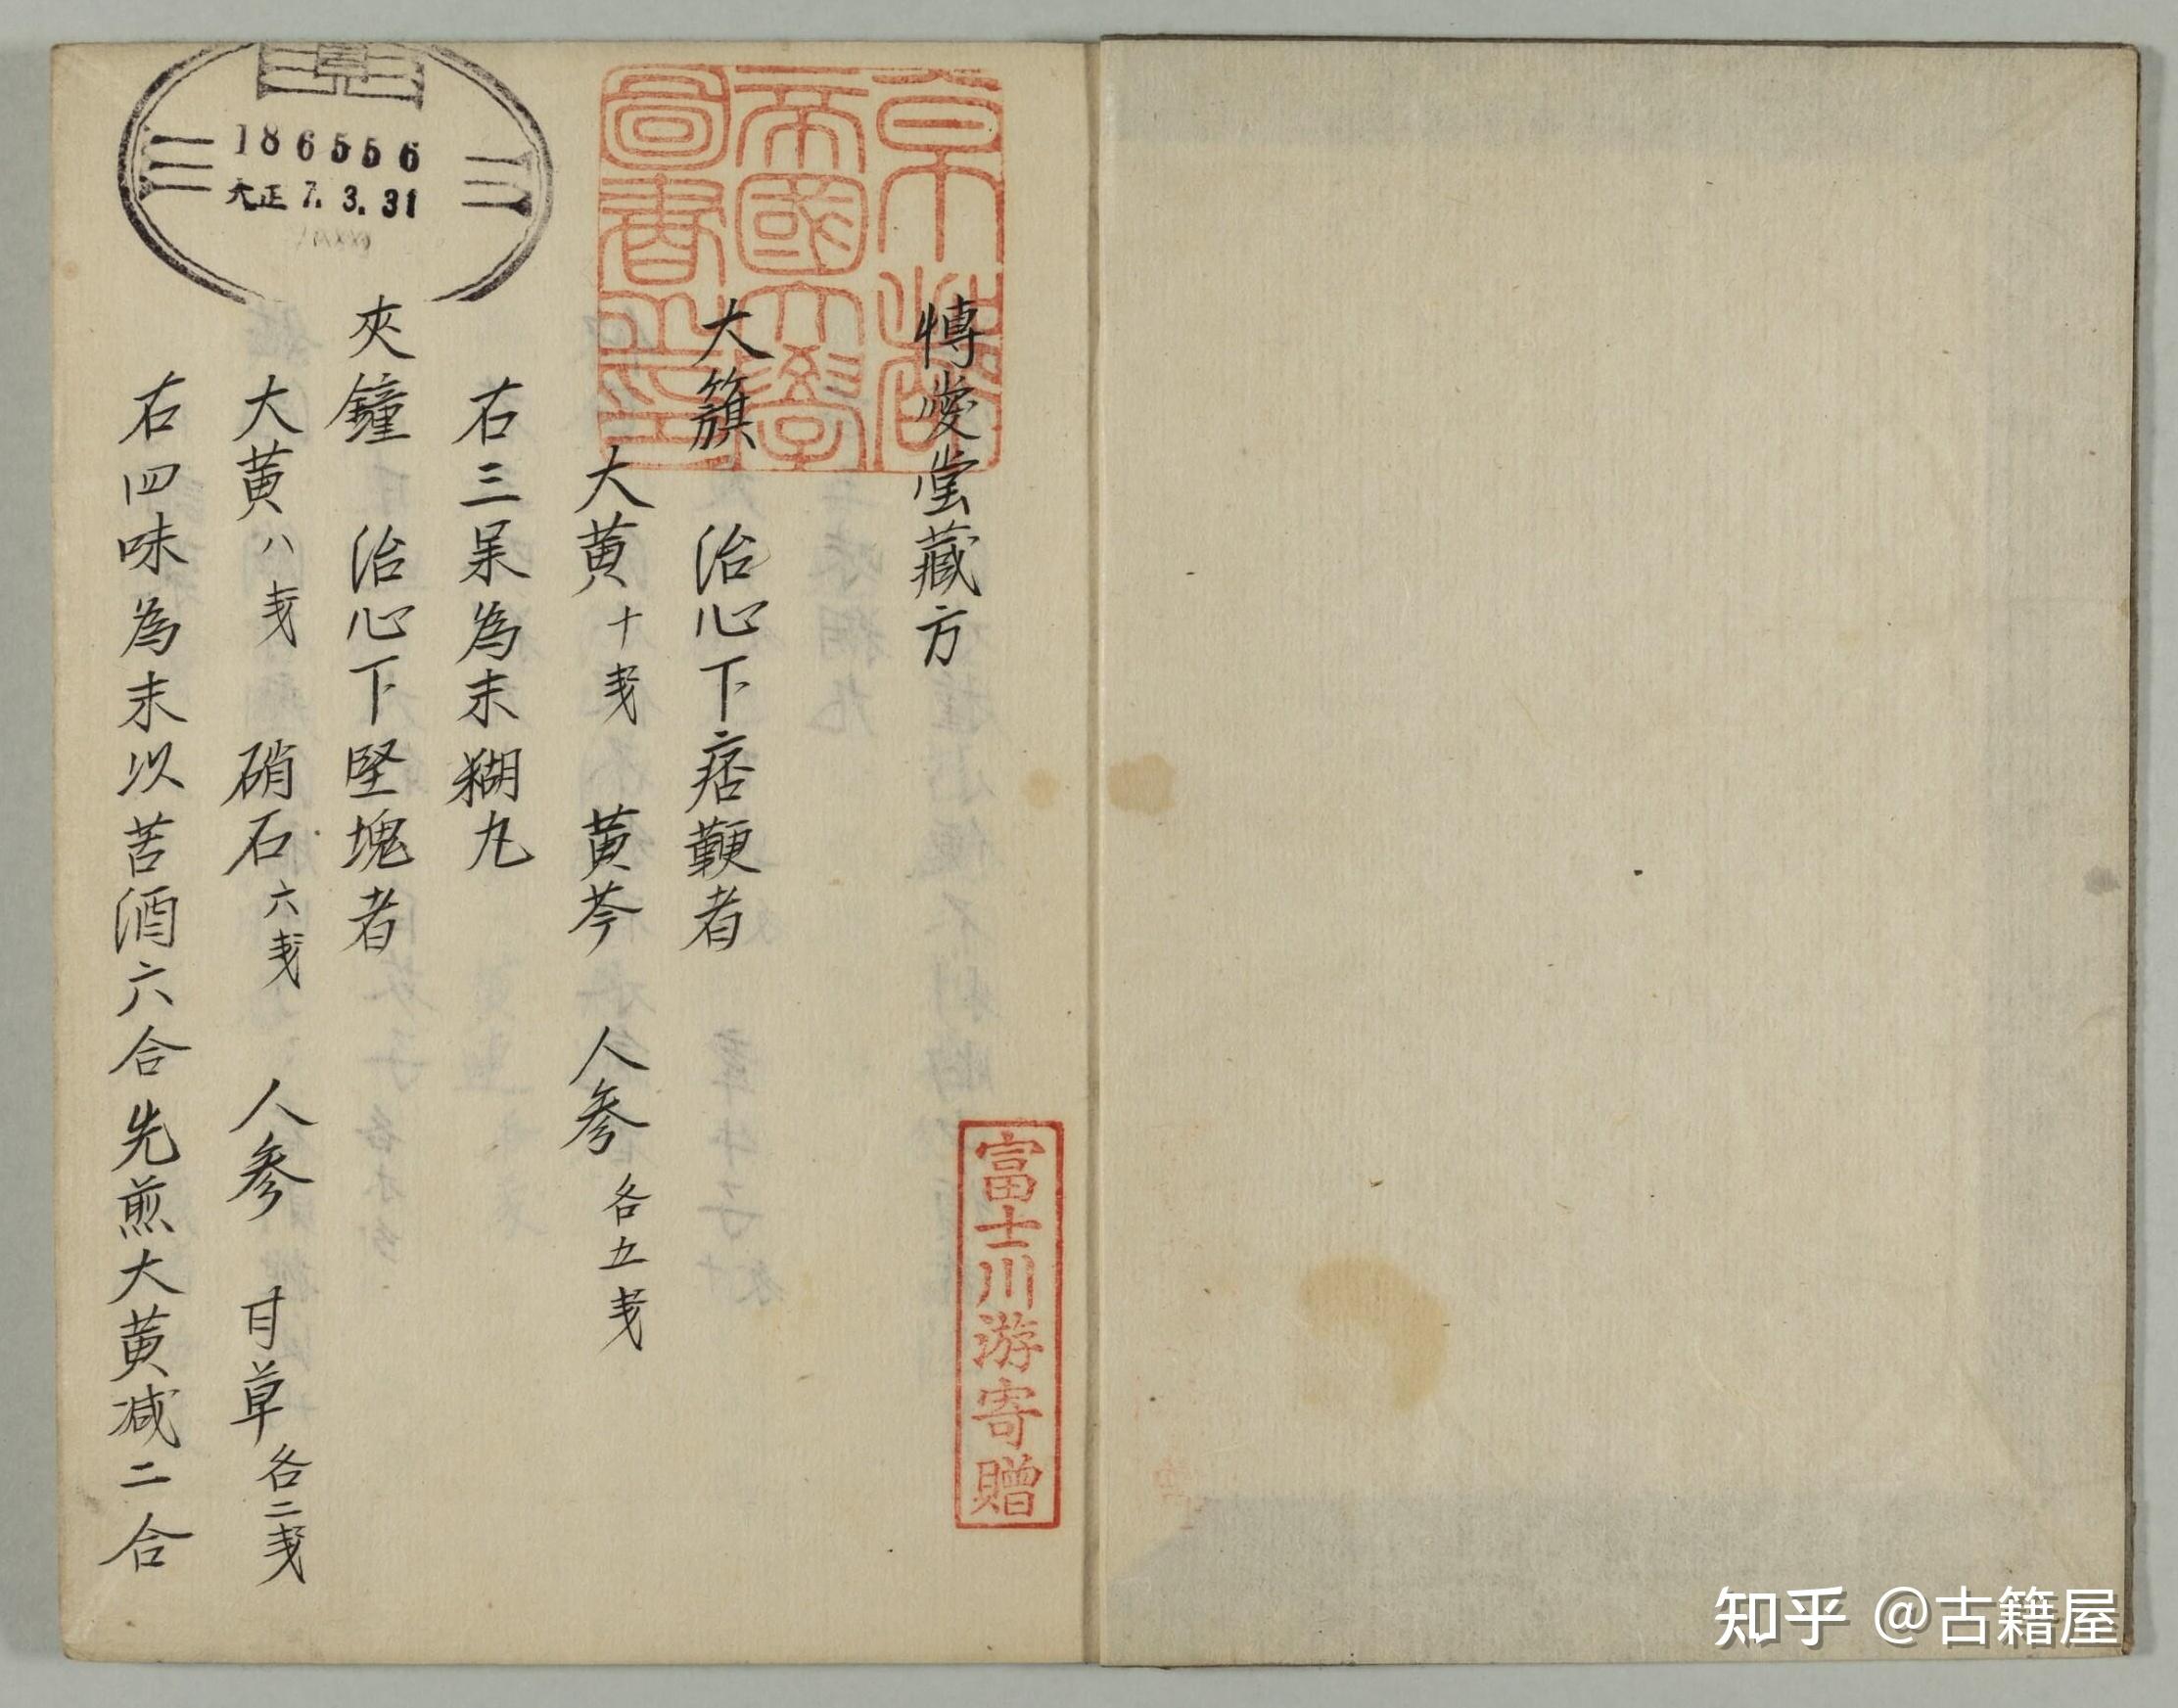 博愛堂藏方
大簇 治心下痞鞕者
大黄十戔 黄芩 人参各五戔
右三味為末糊丸
夾鐘 治心下堅塊者
大黄八戔 硝石六戔 人参 甘草各二戔
右四味為末以苦酒六合先煎大黄减二合
京都
帝國大學
圖書之印
富士川游寄贈
186556
大正7.3.31
知乎 @古籍屋